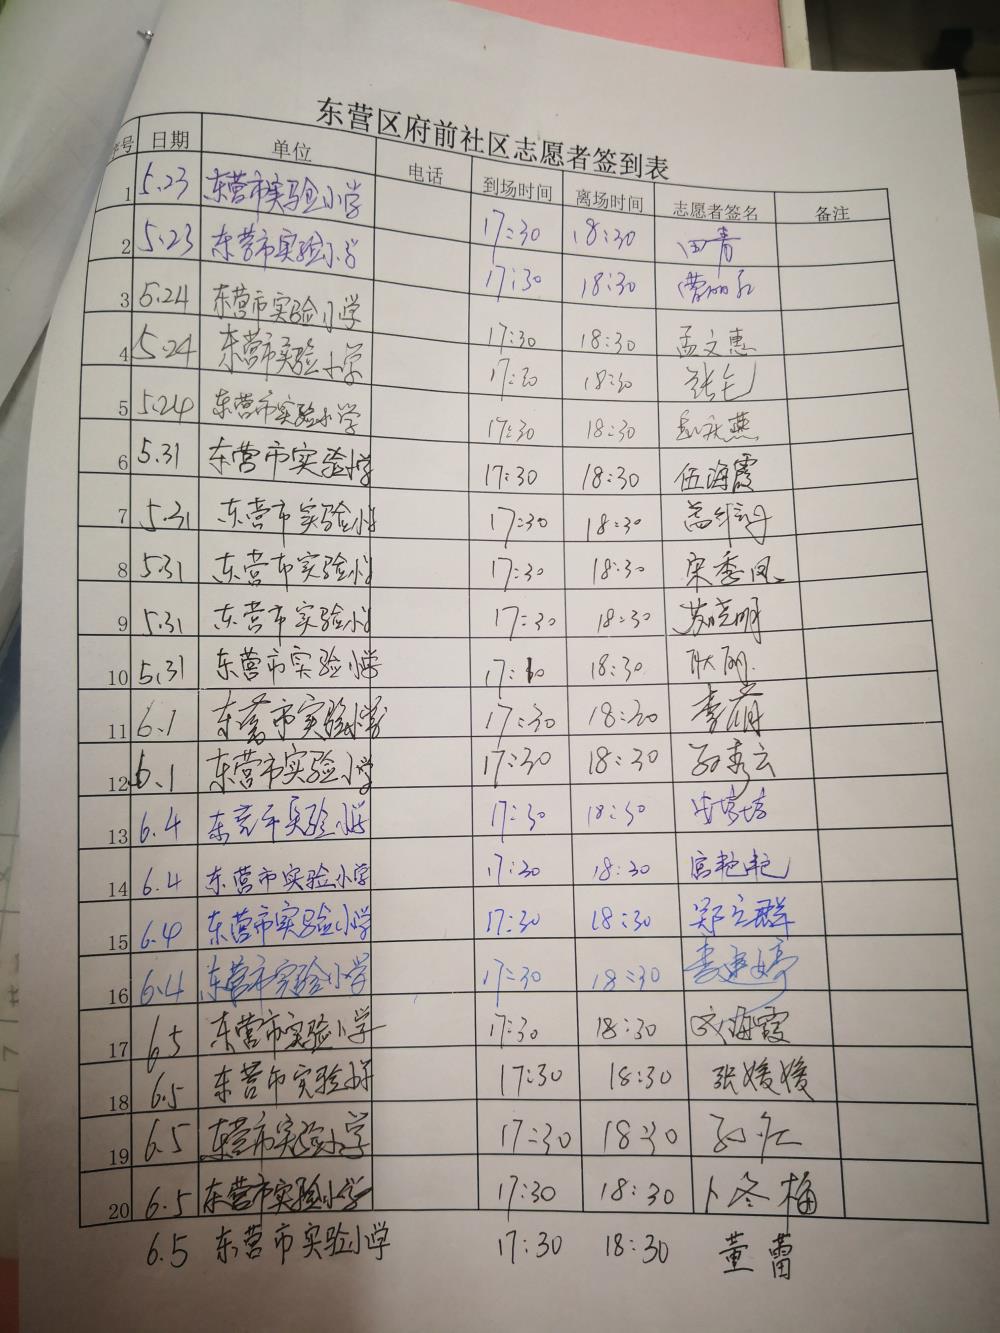 东营区府前社区志愿者签到表
序号 日期 单位 电话 到场时间 离场时间 志愿者签名 备注
1 5.23 东营市实验小学 17:30 18:30 田青
2 5.23 东营市实验小学 17:30 18:30
3 5.24 东营市实验小学 17:30 18:30 孟文惠
4 5.24 东营市实验小学 17:30 18:30
5 5.24 东营市实验小学 17:30 18:30
6 5.31 东营市实验小学 17:30 18:30 伍海霞
7 5.31 东营市实验小学 17:30 18:30
8 5.31 东营市实验小学 17:30 18:30 宋季凤
9 5.31 东营市实验小学 17:30 18:30 苏晓明
10 5.31 东营市实验小学 17:30 18:30 耿丽
11 6.1 东营市实验小学 17:30 18:30 李萌
12 6.1 东营市实验小学 17:30 18:30 孙秀云
13 6.4 东营市实验小学 17:30 18:30
14 6.4 东营市实验小学 17:30 18:30 宫艳艳
15 6.4 东营市实验小学 17:30 18:30 郑立群
16 6.4 东营市实验小学 17:30 18:30 李建婷
17 6.5 东营市实验小学 17:30 18:30 刘海霞
18 6.5 东营市实验小学 17:30 18:30 张媛媛
19 6.5 东营市实验小学 17:30 18:30
20 6.5 东营市实验小学 17:30 18:30 卜冬梅
6.5 东营市实验小学 17:30 18:30 董蕾